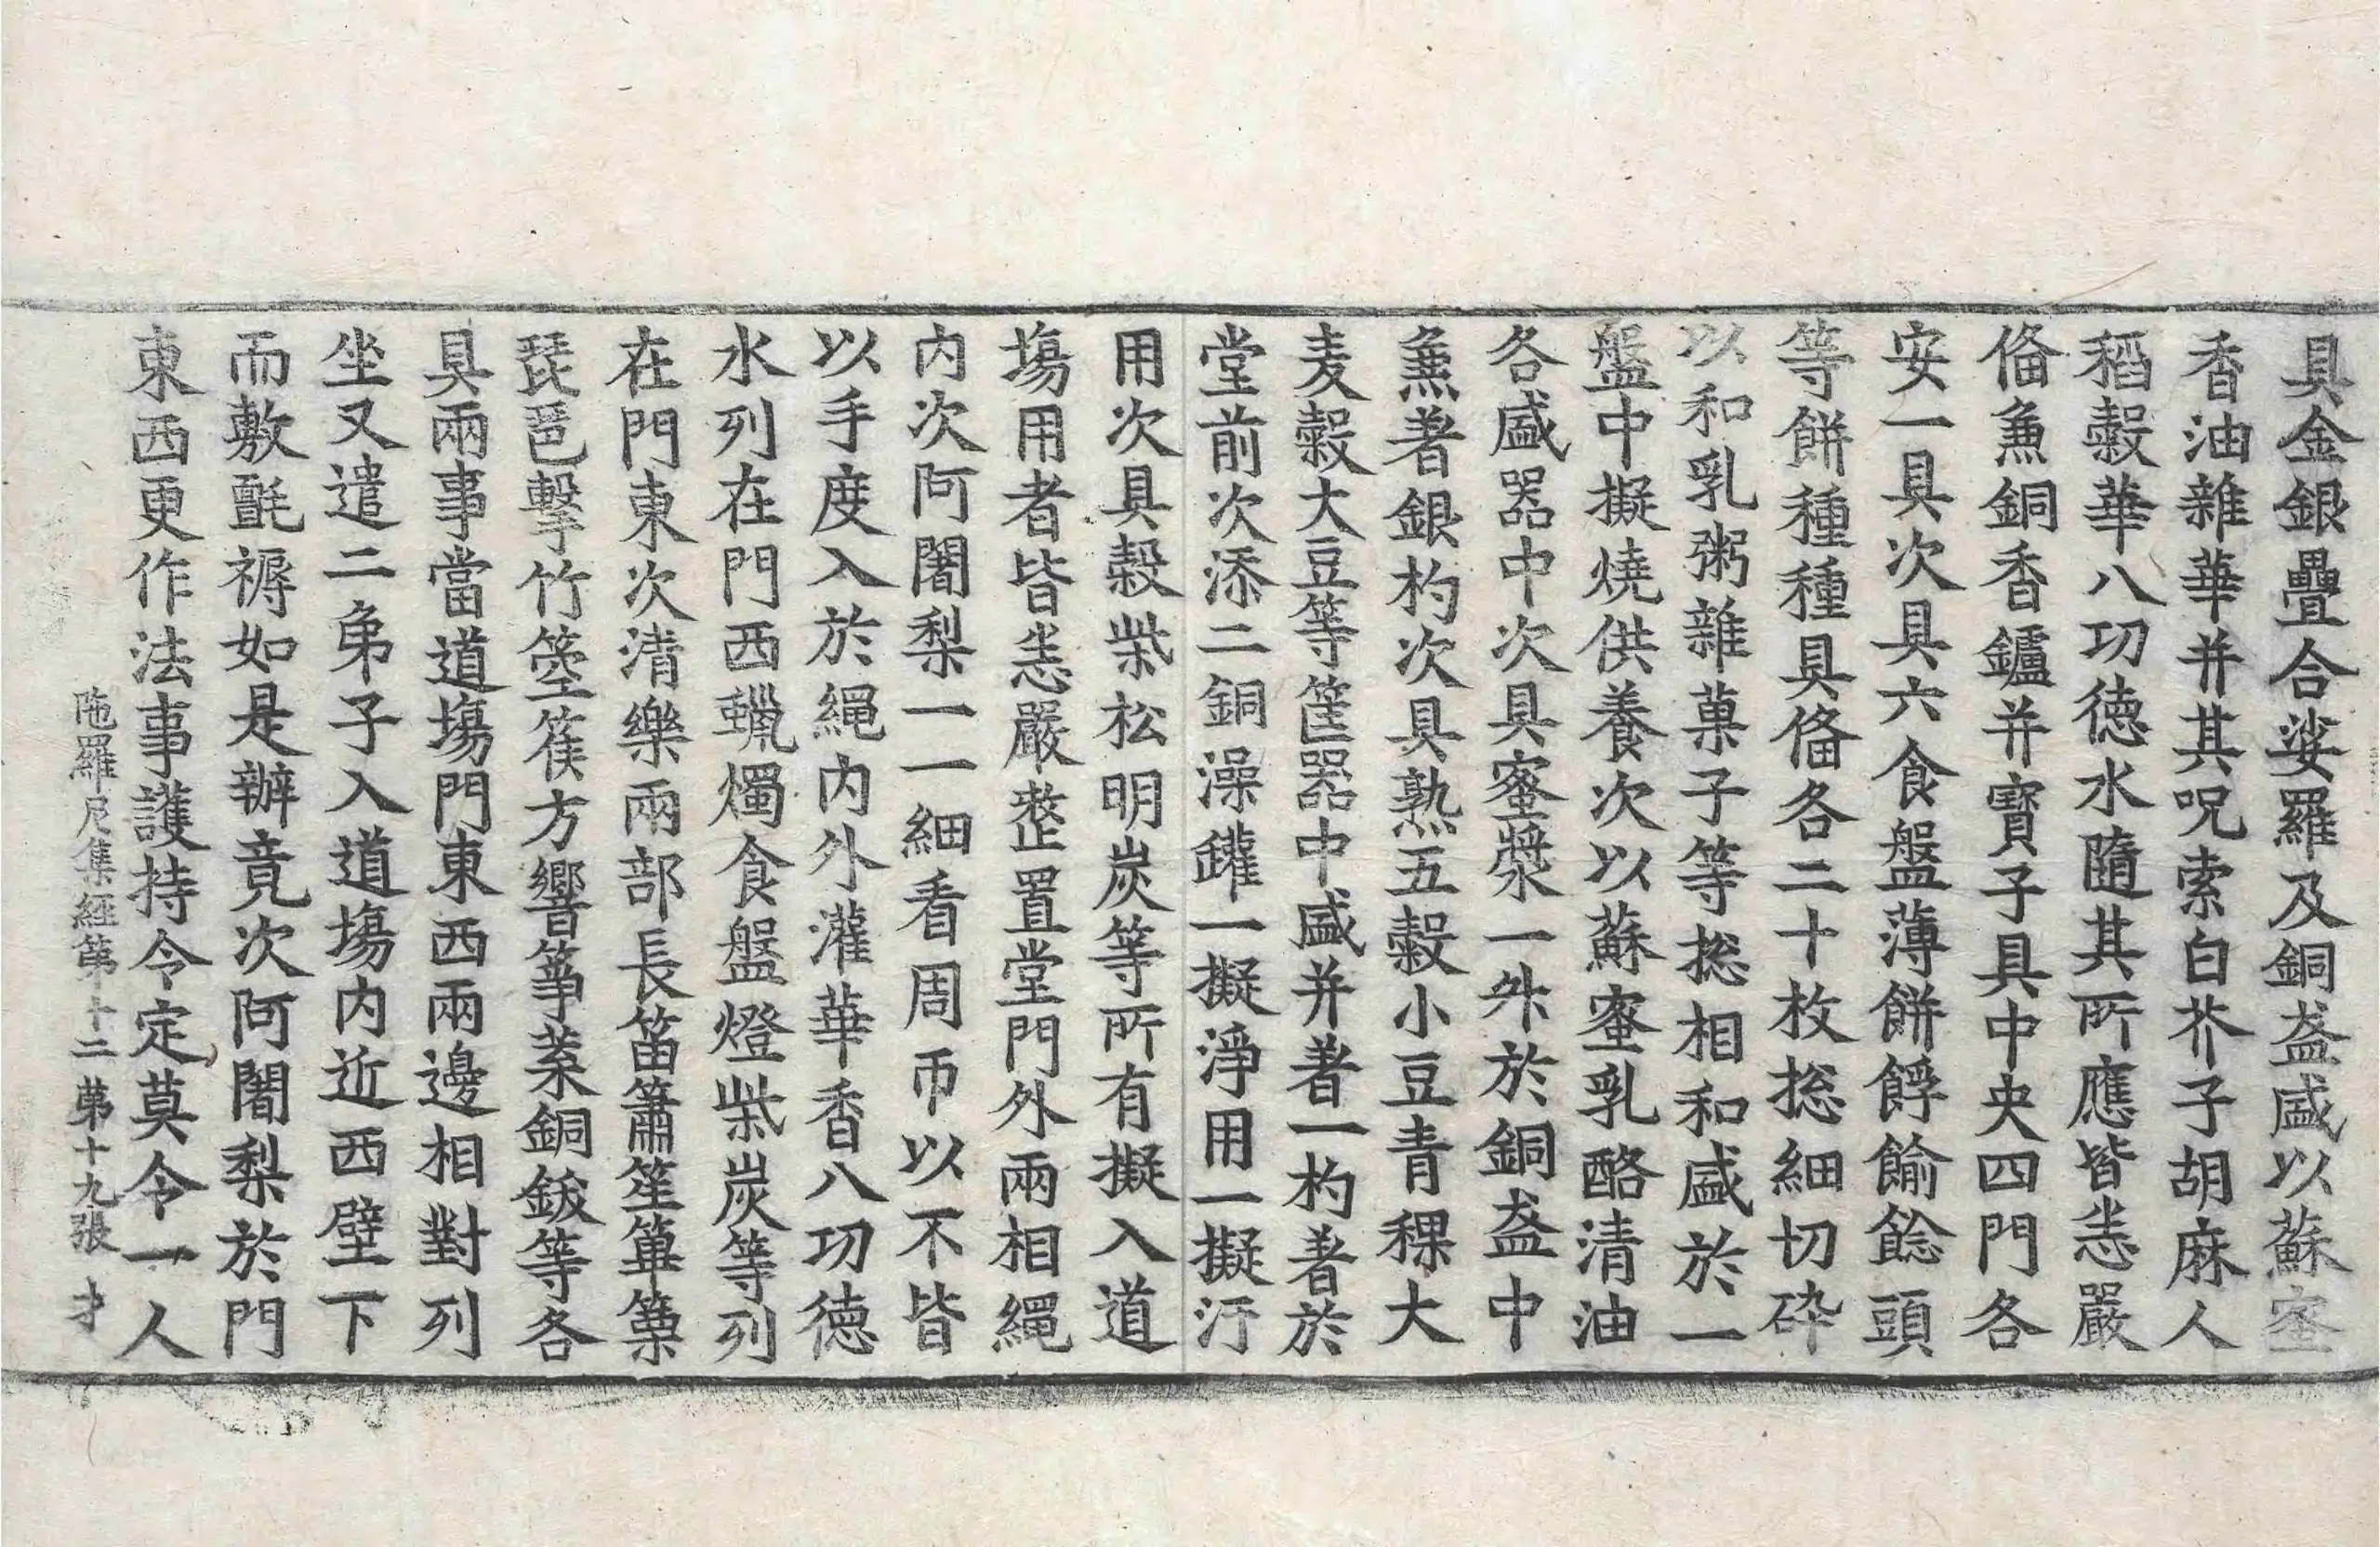 具金銀疊合娑羅及銅盋盛以蘇蜜
香油雜華并其呪索白芥子胡麻人
稻糓華八功徳水隨其所應皆悉嚴
俻𠁅銅香鑪并寶子具中央四門各
安一具次具六食盤薄餅餑𩜇餤頭
等餅種種具俻各二十枚揔細切碎
以和乳粥雜菓子等揔相和盛於一
盤中擬燒供養次以蘇蜜乳酪清油
各盛器中次具蜜漿一外於銅盋中
𠁅著銀杓次具熟五糓小豆青稞大
麦糓大豆等筐器中盛并著一杓著於
堂前次添二銅澡鑵一擬淨用一擬汙
用次具糓柴松明炭等所有擬入道
塲用者皆悉嚴整置堂門外兩相繩
内次阿闍梨一一細看周帀以不皆
以手度入於繩内外灌華香八功徳
水列在門西蠟燭食盤燈柴炭等列
在門東次清樂兩部長笛簫笙篳篥
琵琶擊竹箜篌方響筝葉銅鈸等各
具兩事當道塲門東西兩邊相對列
坐又遣二弟子入道塲内近西壁下
而敷氈褥如是辦竟次阿闍梨於門
東西更作法事護持令定莫令一人
陁羅尼集經第十二 第十九張 才